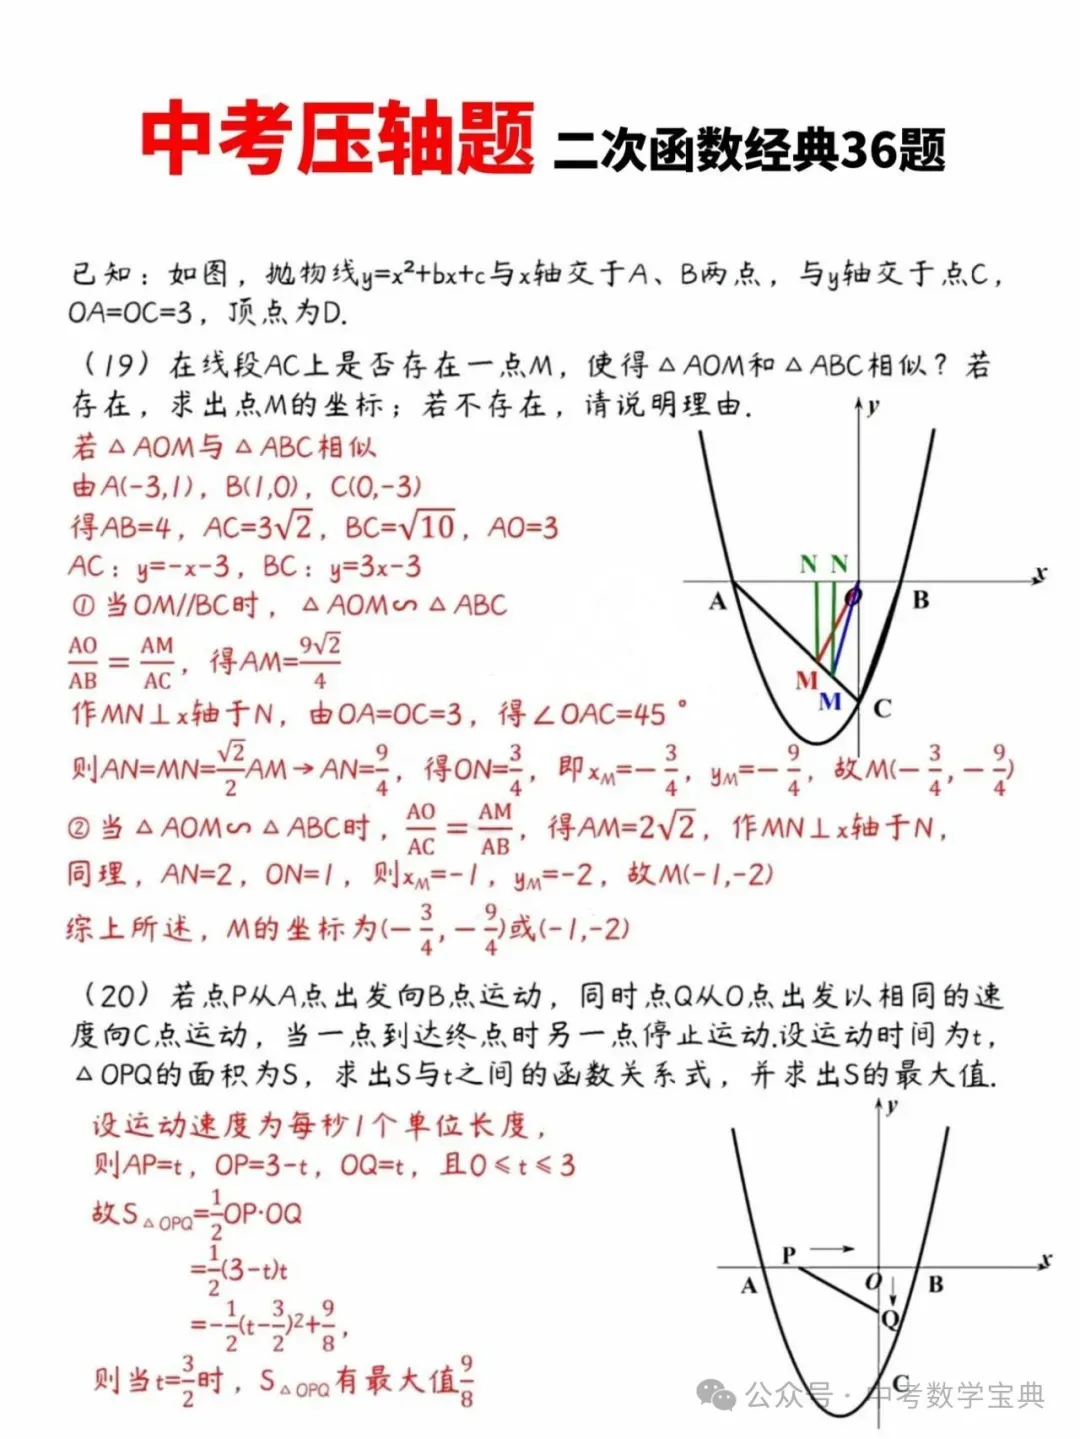 中考压轴题 二次函数经典36题
已知：如图，抛物线y=x²+bx+c与x轴交于A、B两点，与y轴交于点C，
OA=OC=3，顶点为D.
（19）在线段AC上是否存在一点M，使得△AOM和△ABC相似？若
存在，求出点M的坐标；若不存在，请说明理由.
若△AOM与△ABC相似
由A(-3,1)，B(1,0)，C(0,-3)
得AB=4，AC=3√2，BC=√10，AO=3
AC：y=-x-3，BC：y=3x-3
①当OM//BC时，△AOM∽△ABC
AO/AB=AM/AC，得AM=9√2/4
作MN⊥x轴于N，由OA=OC=3，得∠OAC=45°
则AN=MN=√2/2AM→AN=9/4，得ON=3/4，即xM=-3/4，yM=-9/4，故M(-3/4,-9/4)
②当△AOM∽△ABC时，AO/AC=AM/AB，得AM=2√2，作MN⊥x轴于N，
同理，AN=2，ON=1，则xM=-1，yM=-2，故M(-1,-2)
综上所述，M的坐标为(-3/4,-9/4)或(-1,-2)
y
x
N N
A
O
B
M
M
C
（20）若点P从A点出发向B点运动，同时点Q从O点出发以相同的速
度向C点运动，当一点到达终点时另一点停止运动.设运动时间为t，
△OPQ的面积为S，求出S与t之间的函数关系式，并求出S的最大值.
设运动速度为每秒1个单位长度，
则AP=t，OP=3-t，OQ=t，且0≤t≤3
故S△OPQ=1/2OP·OQ
=1/2(3-t)t
=-1/2(t-3/2)²+9/8，
则当t=3/2时，S△OPQ有最大值9/8
y
x
P
A
O
B
Q
C
公众号·中考数学宝典